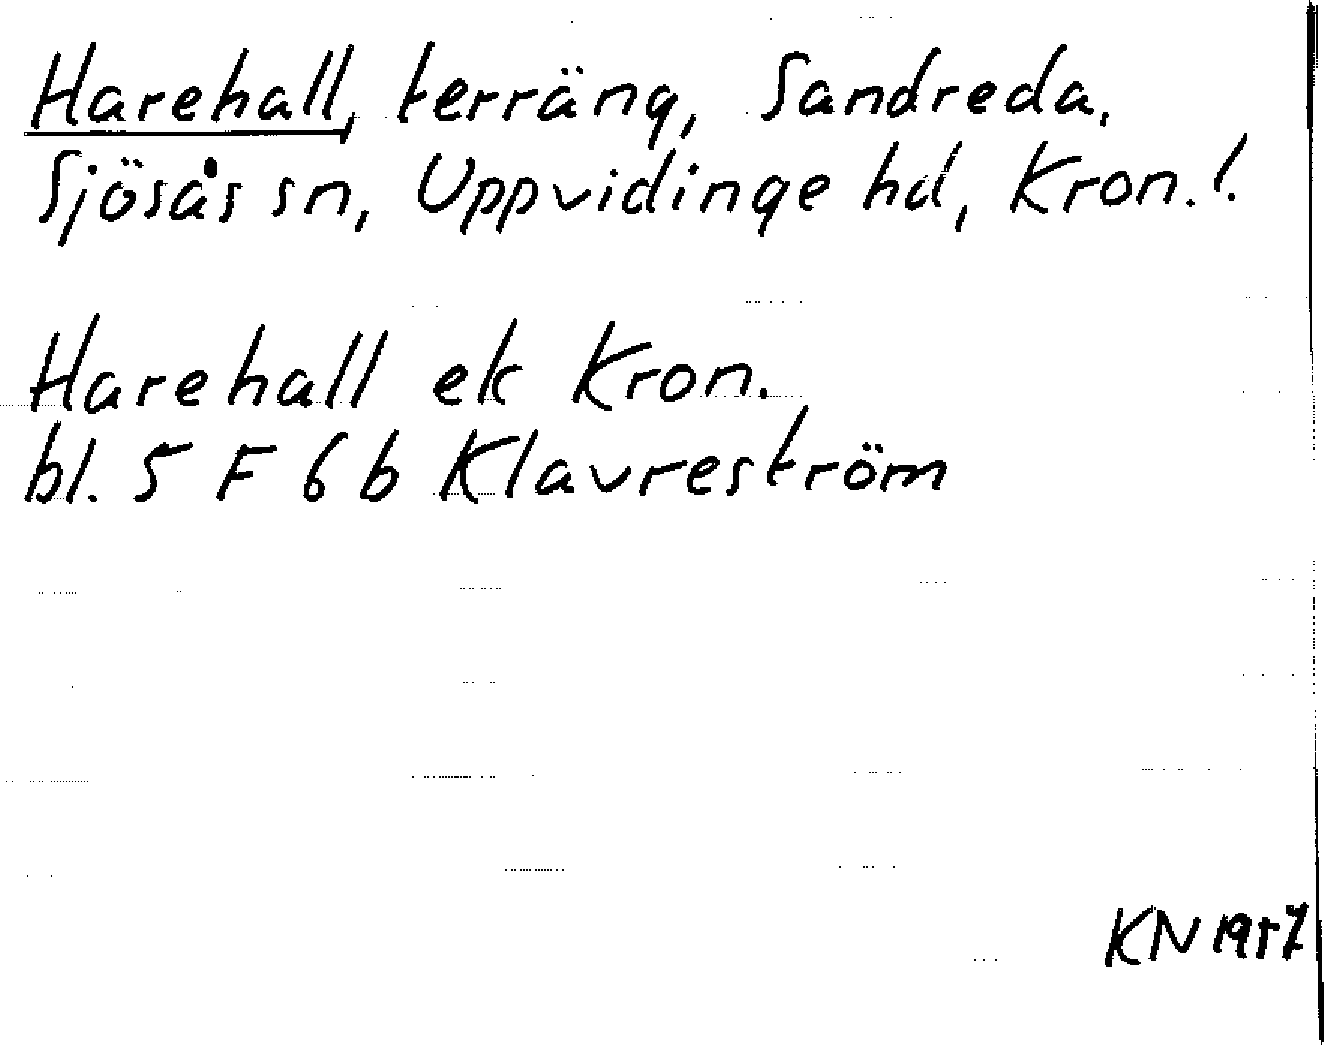 Harehall, terräng, Sandreda,
Sjösås sn, Uppvidinge hd, Kron. l.
Harehall ek Kron.
bl. 5 F 6 b Klavreström
KN 1957